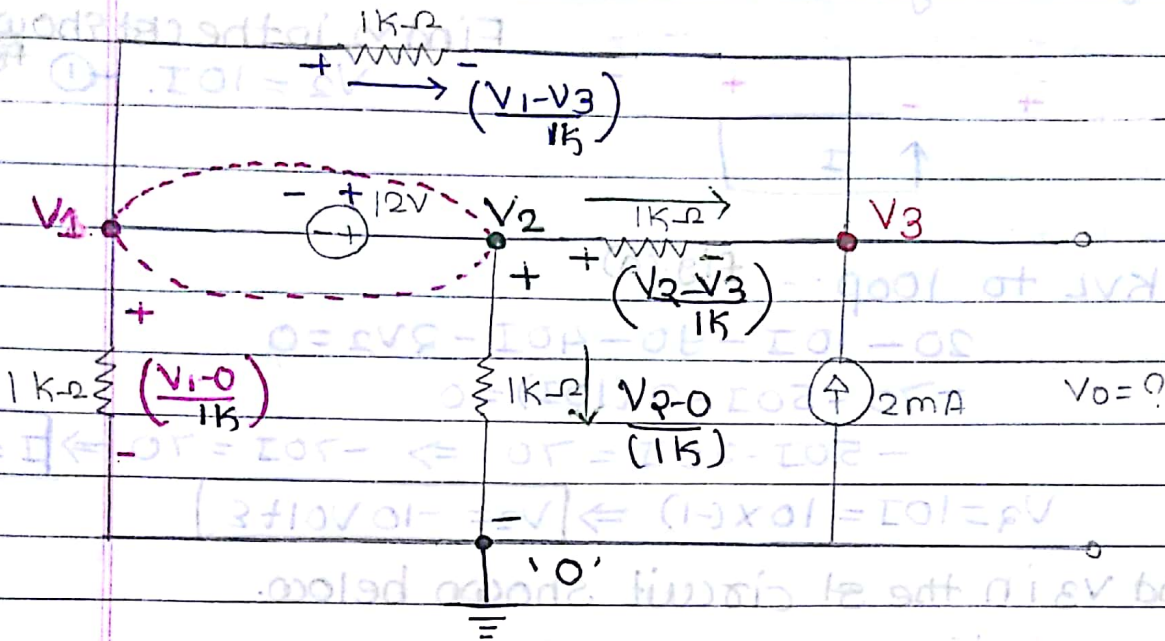 1K-Ω
+ -
(V1-V3
1K)
- + 12V
V1
- +
V2
1K-Ω
V3
+
+ -
(V2-V3
1K)
+
1K-Ω
(V1-0
1K)
-
1K-Ω
V2-0
(1K)
2mA
V0=?
-
'0'